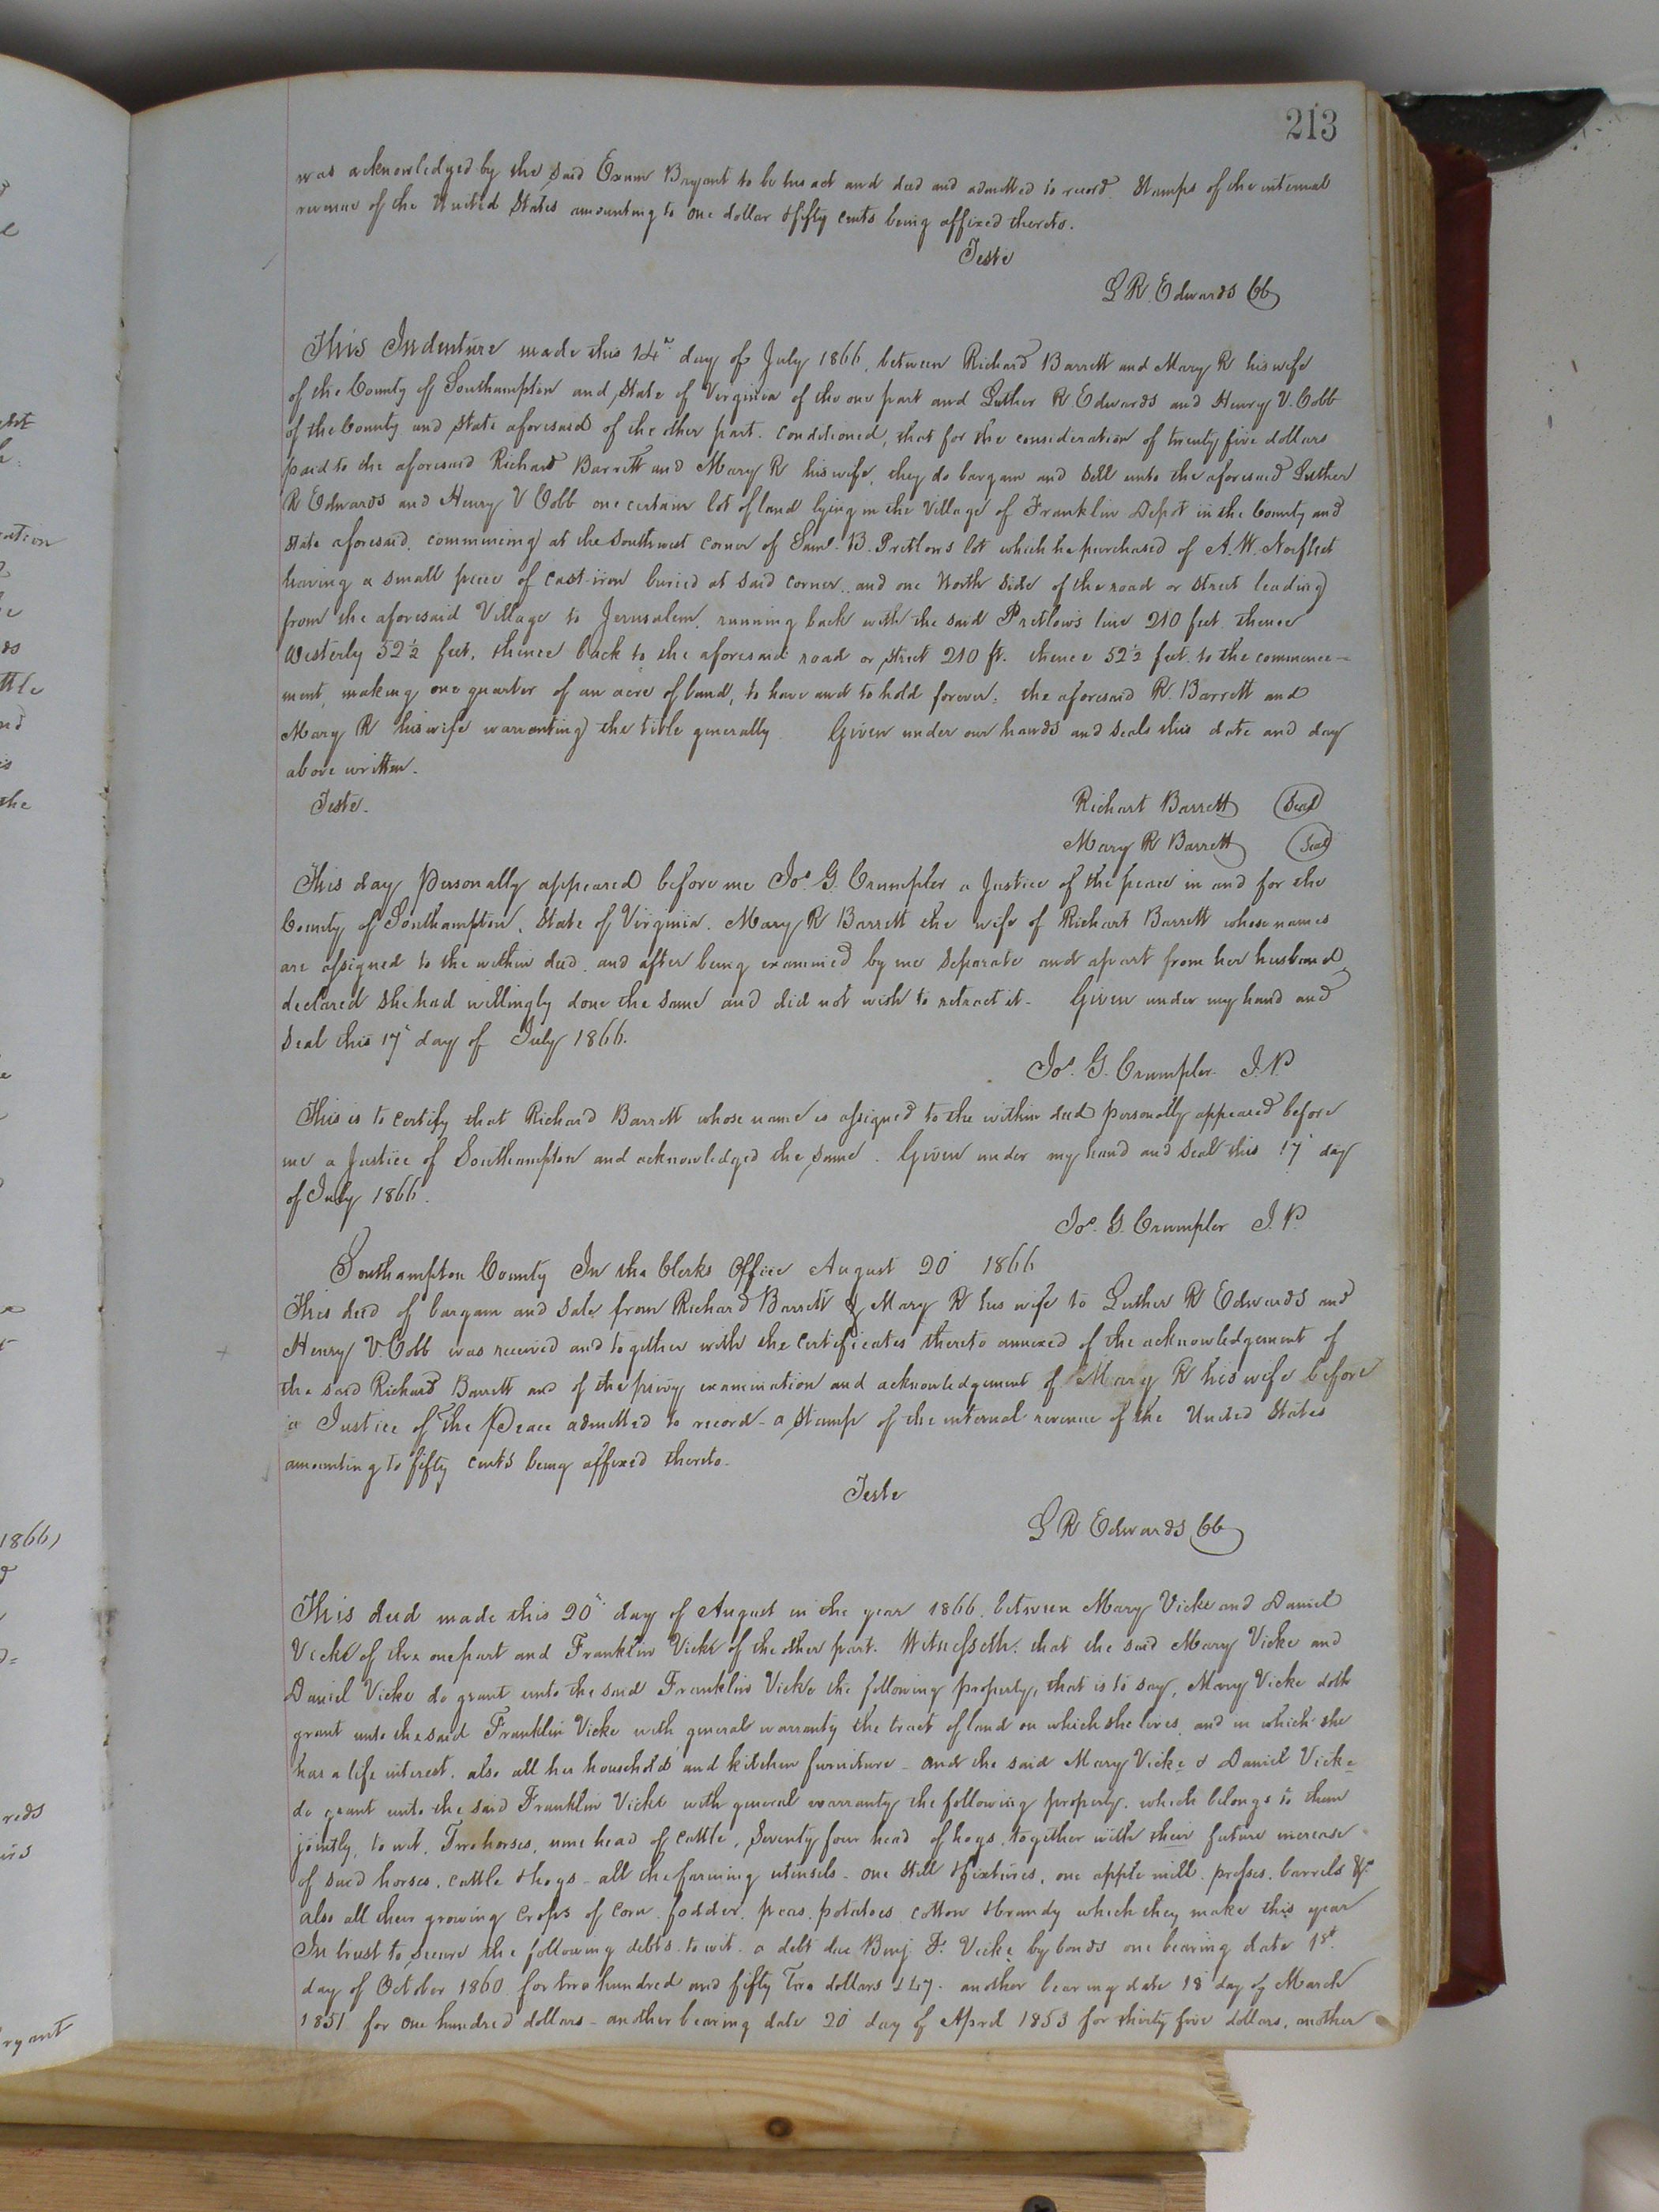 213
was acknowledged by the said Exum Bryant to be his act and deed and admitted to record. Stamps of the internal
revenue of the United States amounting to one dollar & fifty cents being affixed thereto.
Teste
L R. Edwards CC
This Indenture made this 14th day of July 1866, between Richard Barrett and Mary R his wife
of the County of Southampton and State of Virginia of the one part and Luther R Edwards and Henry V. Cobb
of the County and State aforesaid of the other part. conditioned, that for the consideration of twenty five dollars
paid to the aforesaid Richard Barrett and Mary R his wife, they do bargain and sell unto the aforesaid Luther
R Edwards and Henry V Cobb one certain lot of land lying in the Village of Franklin Depot in the County and
State aforesaid, commencing at the Southwest corner of Saml. B. Pretlows lot which he purchased of A. W. Norfleet
having a small piece of cast-iron buried at said corner.. and one North side of the road or street leading
from the aforesaid Village to Jerusalem, running back with the said Pretlow's line 210 feet thence
Westerly 52½ feet, thence back to the aforesaid road or street 210 ft. thence 52½ feet to the commence-
ment, making one quarter of an acre of land, to have and to hold forever, the aforesaid R. Barrett and
Mary R his wife warranting the title generally Given under our hands and seals this date and day
above written.
Teste. Richart Barrett Seal
Mary R Barrett Seal
This day personally appeared before me Jos. G. Crumpler a Justice of the peace in and for the
County of Southampton, State of Virginia. Mary R Barrett the wife of Richart Barrett whose names
are assigned to the within deed. and after being examined by me separate and apart from her husband
declared she had willingly done the same and did not wish to retract it - Given under my hand and
Seal this 17 day of July 1866.
Jos. G. Crumpler J.P
This is to certify that Richard Barrett whose name is assigned to the within deed personally appeared before
me a Justice of Southampton and acknowledged the same. Given under my hand and seal this 17 day
of July 1866.
Jos. G. Crumpler J.P.
Southampton County In the Clerks Office August 20 1866
This deed of bargain and sale from Richard Barrett & Mary R his wife to Luther R Edwards and
Henry V. Cobb was received and together with the certificates thereto annexed of the acknowledgement of
the said Richard Barrett and of the privy examination and acknowledgement of Mary R his wife before
a Justice of the Peace admitted to record - a stamp of the internal revenue of the United States
amounting to fifty cents being affixed thereto.
Teste
L R Edwards CC
This deed made this 20th day of August in the year 1866, between Mary Vicke and Daniel
Vicke of the one part and Franklin Vicke of the other part. Witnesseth. that the said Mary Vicke and
Daniel Vicke do grant unto the said Franklin Vicke the following property, that is to say, Mary Vicke doth
grant unto the said Franklin Vicke with general warranty the tract of land on which she lives, and in which she
has a life interest, also all her household and kitchen furniture - and the said Mary Vicke & Daniel Vicke
do grant unto the said Franklin Vicke with general warranty the following property. which belongs to them
jointly, to wit, Two horses, nine head of cattle, Seventy four head of hogs, together with their future increase
of said horses, cattle & hogs - all the farming utensils - one still & fixtures, one apple mill, presses, barrels &c
also all their growing crops of corn fodder, peas, potatoes cotton & brandy which they make this year
In trust to secure the following debts to wit. a debt due Benj. F. Vicke by bonds one bearing date 1st
day of October 1860 for two hundred and fifty Two dollars 47. another bearing date 18 day of March
1851 for one hundred dollars - another bearing date 20 day of April 1853 for thirty five dollars, another